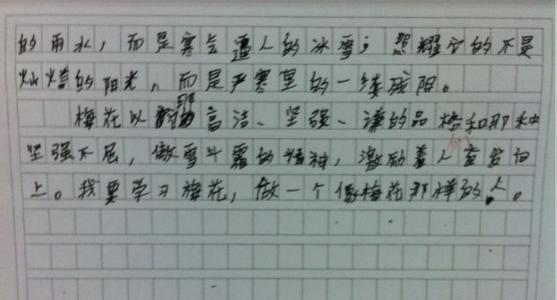 的雨水，而是寒气逼人的冰雪；照耀它的不是
灿烂的阳光，而是严寒里的一缕残阳。
梅花以那高洁、坚强、谦的品格和那种
坚强不屈，傲雪斗霜的精神，激励着人奋发向
上。我要学习梅花，做一个像梅花那样的人。